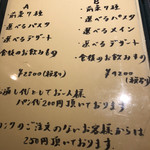 A
・前菜2種
・選べるパスタ
・選べるデザート
・食後のお飲みもの
¥2200(税込)
B
・前菜3種
・選べるパスタ
・選べるメイン
・選べるデザート
・食後のお飲みもの
¥4200
(税込)
お通し代としてお一人様
パン代200円頂いております
ドリンクのご注文のないお客様からは
250円頂いております